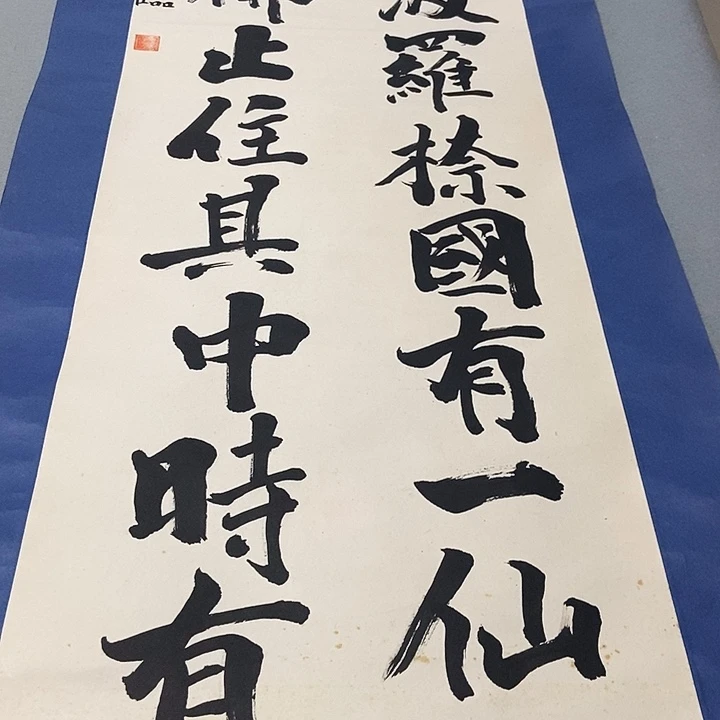 波羅捺國有一仙
止住其中時有
臨